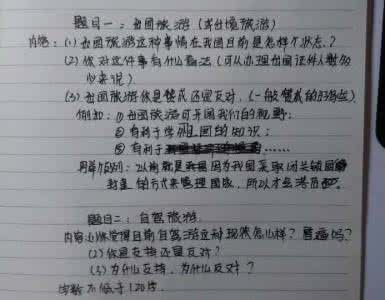 题目一：出国旅游（或出境旅游）
内容：(1) 出国旅游这种事情在我国目前是怎样个状态？
(2) 你对这件事有什么看法（可以办理出国证件人数的多少来说）
(3) 出国旅游你是赞成还是反对，（一般赞成的好
例如：①出国旅游可开阔我们的视野；
②有利于学 国的知识；
③有利于 ……
再举个例：以前就是 因为我国采取闭关锁国
封 方式来管理国家，所以才会落后
题目二：自驾旅游
内容：(1) 你觉得目前自驾游这种现状怎么样？普遍吗？
(2) 你是支持还是反对？
(3) 为什么支持，为什么反对？
字数不低于120字。